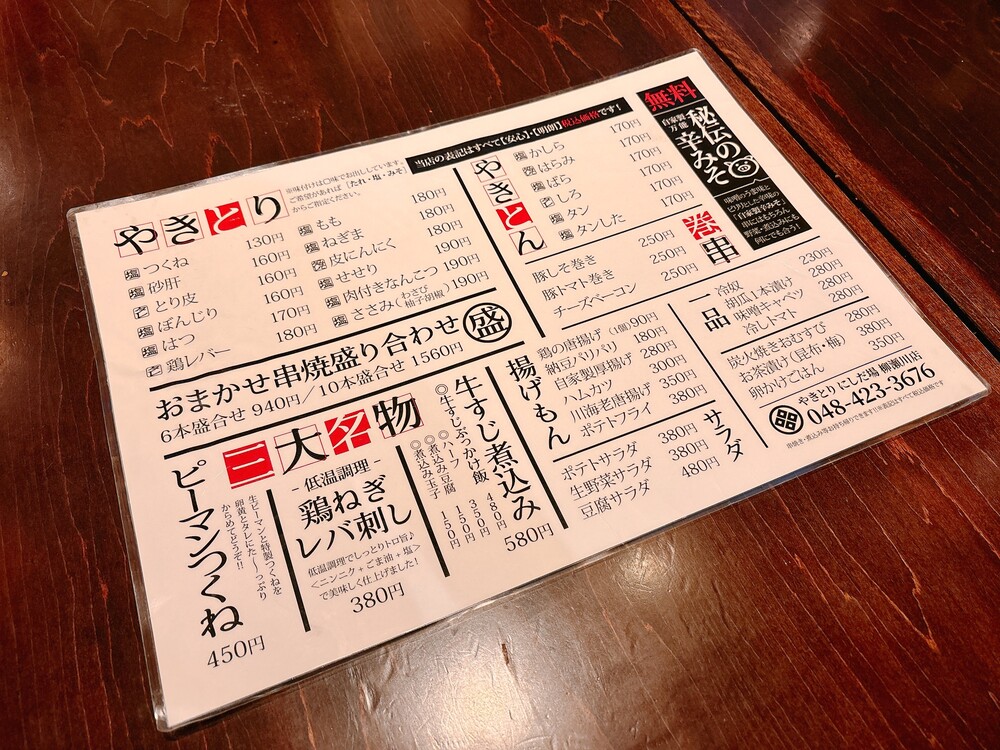 やきとり
※味付けは□味でお出ししています。
ご希望があれば「たれ・塩・みそ」
からご指定ください。
塩 つくね 130円
塩 砂肝 160円
とり皮 160円
塩 ぼんじり 160円
塩 はつ 170円
鶏レバー 180円
塩 もも 180円
塩 ねぎま 180円
皮にんにく 180円
塩 せせり 190円
塩 肉付きなんこつ 190円
塩 ささみ(わさび 柚子胡椒) 190円
おまかせ串焼盛り合わせ 盛
6本盛合せ 940円/10本盛合せ 1560円
三大名物
ピーマンつくね
生ピーマンと特製つくねを
卵黄とタレにた〜っぷり
からめてどうぞ!!
450円
- 低温調理 -
鶏ねぎ
レバ刺し
低温調理でしっとりトロ旨♪
<ニンニク+ごま油+塩>
で美味しく仕上げました!
380円
牛すじ煮込み
580円
◎牛すじぶっかけ飯 480円
◎ハーフ 350円
◎煮込み豆腐 150円
◎煮込み玉子 150円
当店の表記はすべて【安心】・【明朗】税込価格です!
やきとん
塩 かしら 170円
はらみ 170円
塩 ばら 170円
しろ 170円
塩 タン 170円
塩 タンした 170円
巻串
豚しそ巻き 250円
豚トマト巻き 250円
チーズベーコン 250円
揚げもん
鶏の唐揚げ (1個)90円
納豆パリパリ 180円
自家製厚揚げ 280円
ハムカツ 300円
川海老唐揚げ 350円
ポテトフライ 380円
サラダ
ポテトサラダ 380円
生野菜サラダ 380円
豆腐サラダ 480円
無料
自家製
万能
秘伝の
辛みそ
味噌のうま味と
ピリとした辛味の
「自家製辛みそ」
串にはもちろん
野菜・煮込みにも
何にでも合う!
一品
冷奴 230円
胡瓜1本漬け 280円
味噌キャベツ 280円
冷しトマト 280円
炭火焼きおむすび 280円
お茶漬け(昆布・梅) 380円
卵かけごはん 350円
やきとり にしだ場 柳瀬川店
048-423-3676
串焼き・煮込み等お持ち帰りできます!!※表記はすべて税込価格です